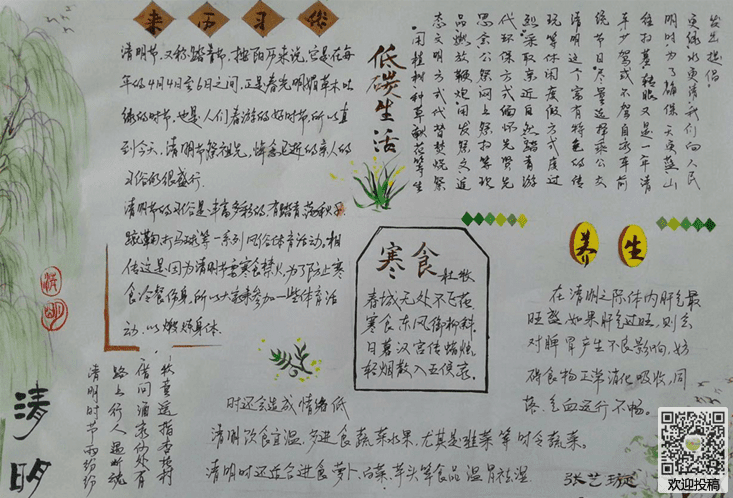 来历习俗
清明节,又称踏青节,按阳历来说,它是在每
年的4月4日至6日之间,正是春光明媚草木吐
绿的时节,也是人们春游的好时节,所以直
到今天,清明节祭祖先,悼念已逝的亲人的
习俗仍很盛行.
清明节的习俗是丰富多彩的,有踏青、荡秋千、
蹴鞠、打马球等一系列风俗体育活动,相
传这是因为清明节要寒食禁火,为了防止寒
食冷餐伤身,所以大家来参加一些体育活
动,以锻炼身体.
低碳生活
发出提倡:
更绿水更清我们向人民
明时,为了确保天更蓝山
往扫墓,转眼又是一年清
车少驾或不驾自家车前
统节日,尽量选择乘公交
清明这个富有特色的传
玩等休闲度假方式度过
烈采取亲近自然踏青游
代环保方式缅怀先贤先
思念公祭网上祭扫等现
品燃放鞭炮,用发祭文追
态文明方式代替焚烧祭
用植树种草献花等生
寒食
杜牧
春城无处不飞花
寒食东风御柳斜.
日暮汉宫传蜡烛,
轻烟散入五侯家.
养生
在清明之际体内肝气最
旺盛,如果肝气过旺,则会
对脾胃产生不良影响,妨
碍食物正常消化吸收,同
气血运行不畅.
时还会造成情绪低
清明饮食宜温,多进食蔬菜水果,尤其是韭菜等时令蔬菜.
清明时还适合进食萝卜、白菜、芋头等食品,温胃祛湿
清明时节雨纷纷
路上行人欲断魂
借问酒家何处有
牧童遥指杏花村
清明
清明
张艺璇
欢迎投稿